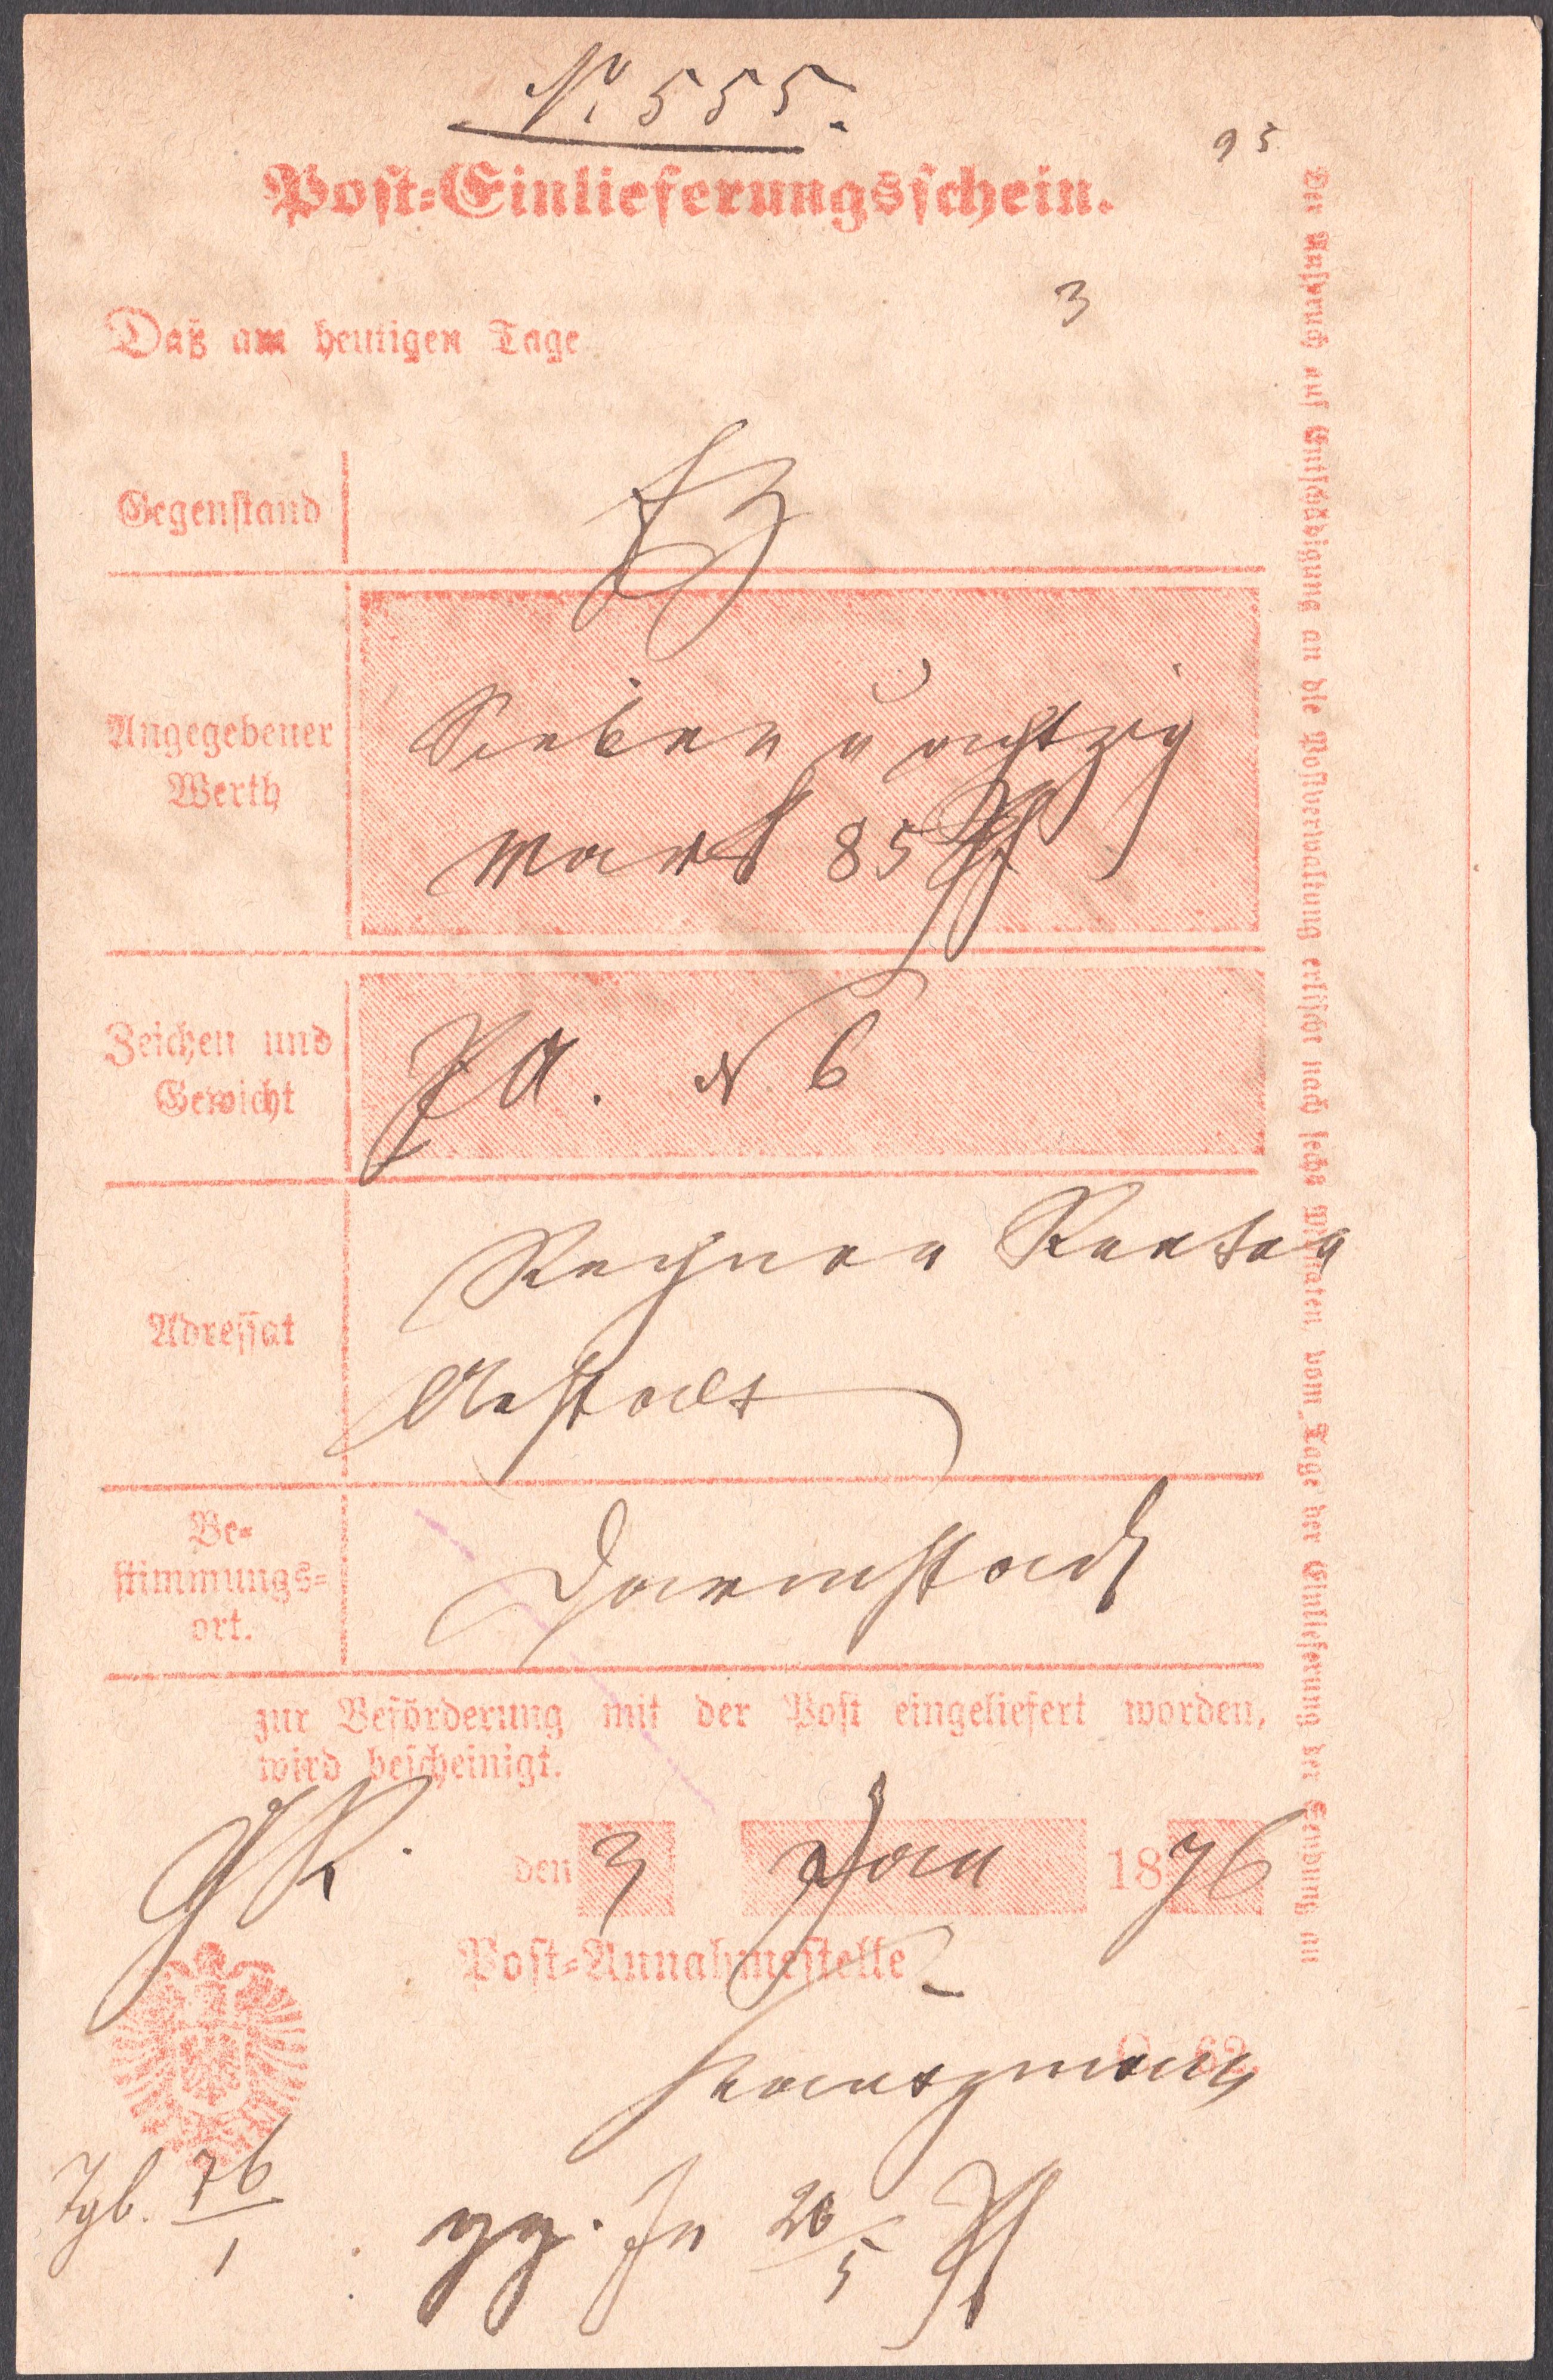 No 555.
95
Post-Einlieferungsschein.
3
Daß am heutigen Tage
Gegenstand
Angegebener
Werth
Sieben u achtzig
Mark 85 Pf
Zeichen und
Gewicht
PA. N 6
Adressat
Bestimmungs-
Be-
stimmungs-
ort.
Darmstadt
zur Beförderung mit der Post eingeliefert worden,
wird bescheinigt.
den 3 Jan 1876
Post-Annahmestelle
C. 62.
Tgb. 76/1
20/5 Pf
Der Anspruch auf Entschädigung an die Postverwaltung erlischt nach sechs Monaten, vom Tage der Einlieferung der Sendung an